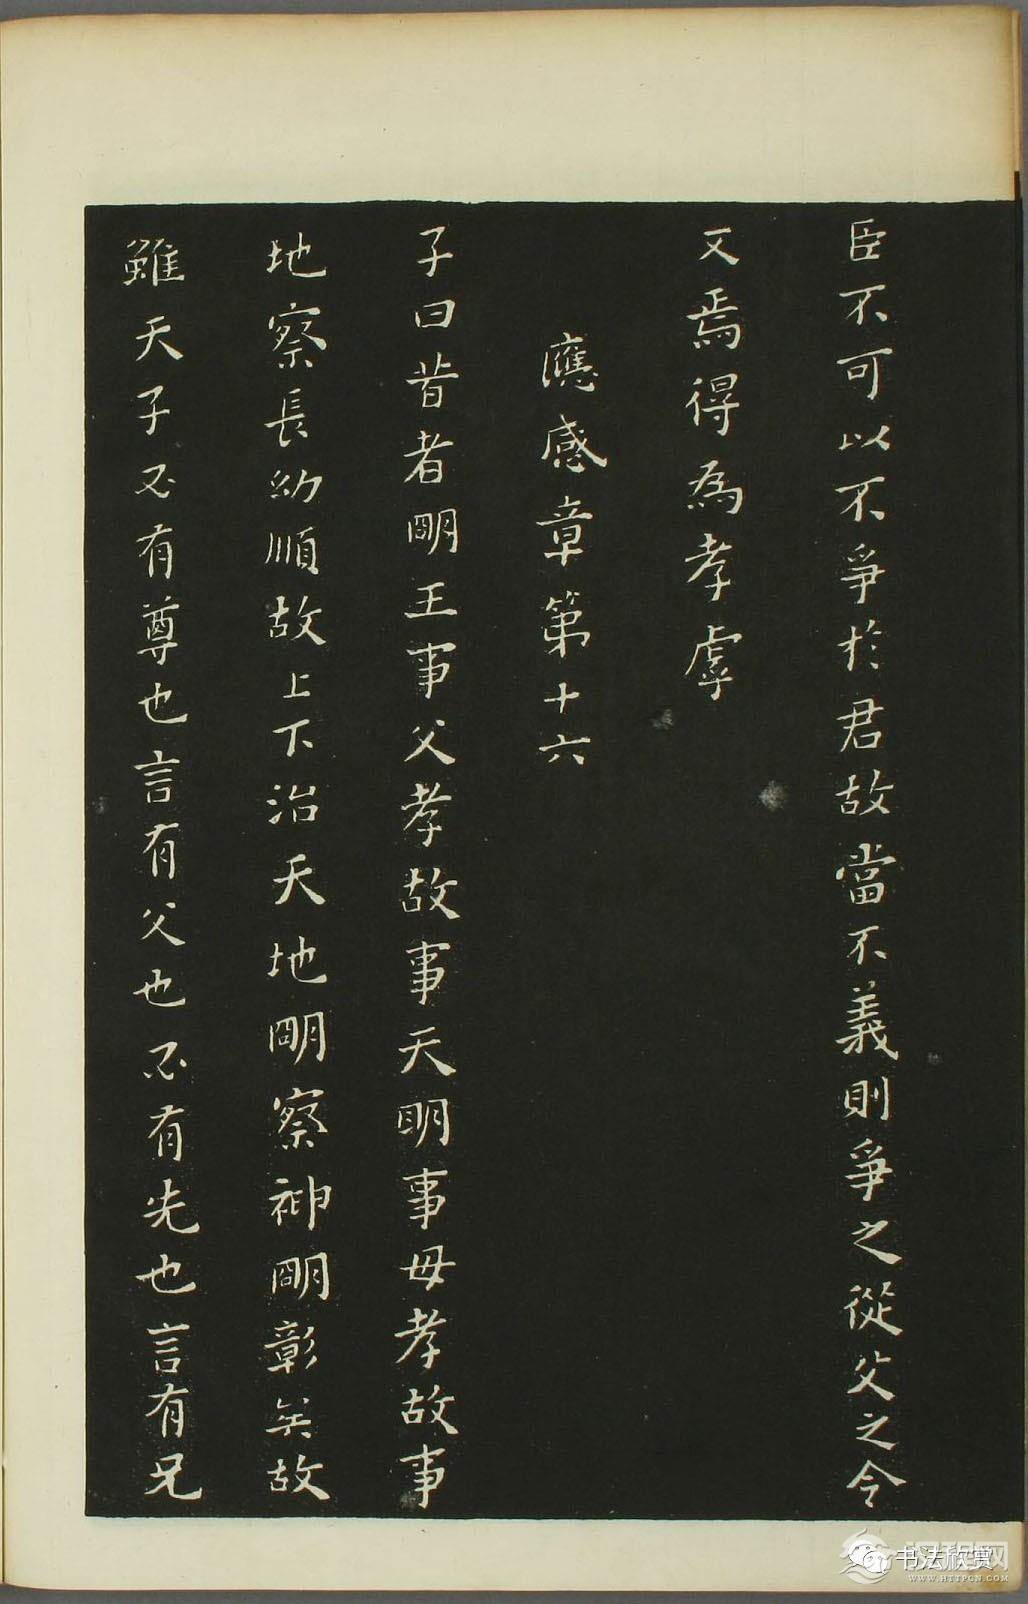 臣不可以不爭於君故當不義則爭之從父之令
又焉得為孝虖
應感章第十六
子曰昔者朙王事父孝故事天明事母孝故事
地察長幼順故上下治天地朙察神朙彰矣故
雖天子必有尊也言有父也必有先也言有兄
书法欣赏
WWW.HTTPCN.COM